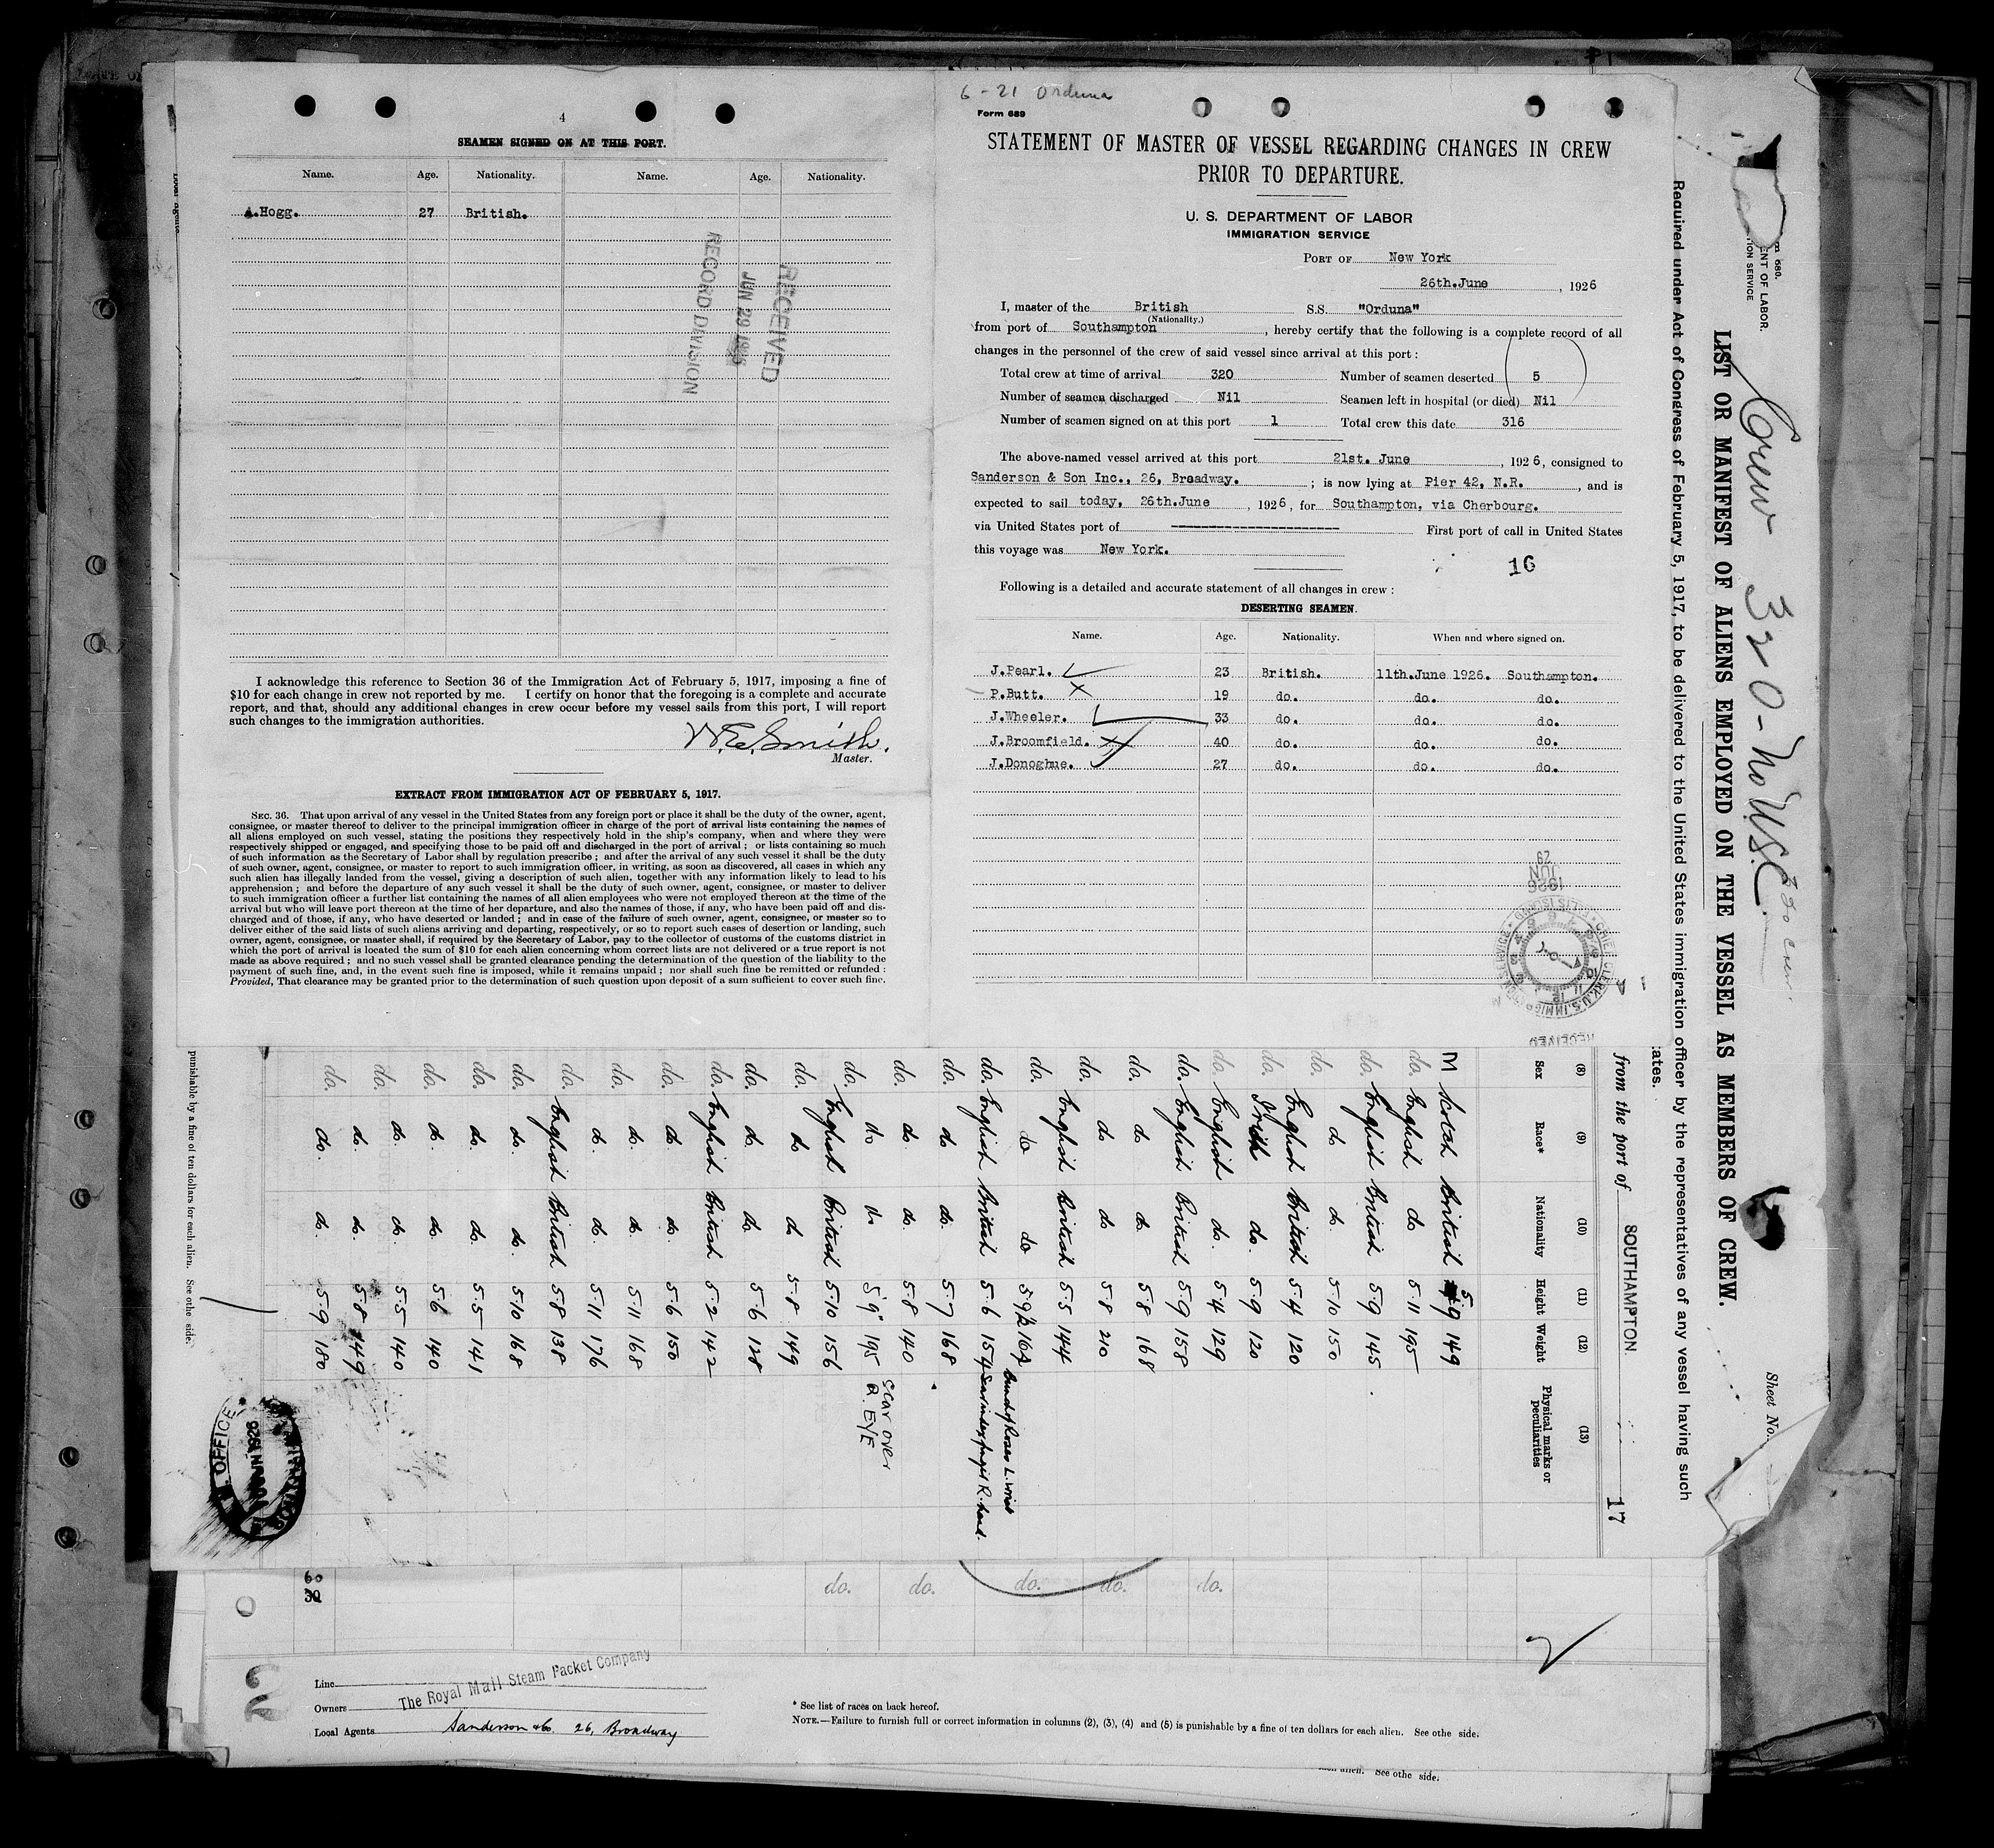 4
SEAMEN SIGNED ON AT THIS PORT.
Name. Age. Nationality. Name. Age. Nationality.
A.Hogg. 27 British.
RECEIVED
JUN 29 1926
RECORD DIVISION
I acknowledge this reference to Section 36 of the Immigration Act of February 5, 1917, imposing a fine of
$10 for each change in crew not reported by me. I certify on honor that the foregoing is a complete and accurate
report, and that, should any additional changes in crew occur before my vessel sails from this port, I will report
such changes to the immigration authorities.
W.E.Smith.
Master.
EXTRACT FROM IMMIGRATION ACT OF FEBRUARY 5, 1917.
SEC. 36. That upon arrival of any vessel in the United States from any foreign port or place it shall be the duty of the owner, agent,
consignee, or master thereof to deliver to the principal immigration officer in charge of the port of arrival lists containing the names of
all aliens employed on such vessel, stating the positions they respectively hold in the ship's company, when and where they were
respectively shipped or engaged, and specifying those to be paid off and discharged in the port of arrival ; or lists containing so much
of such information as the Secretary of Labor shall by regulation prescribe ; and after the arrival of any such vessel it shall be the duty
of such owner, agent, consignee, or master to report to such immigration officer, in writing, as soon as discovered, all cases in which any
such alien has illegally landed from the vessel, giving a description of such alien, together with any information likely to lead to his
apprehension ; and before the departure of any such vessel it shall be the duty of such owner, agent, consignee, or master to deliver
to such immigration officer a further list containing the names of all alien employees who were not employed thereon at the time of the
arrival but who will leave port thereon at the time of her departure, and also the names of those, if any, who have been paid off and dis-
charged and of those, if any, who have deserted or landed ; and in case of the failure of such owner, agent, consignee, or master so to
deliver either of the said lists of such aliens arriving and departing, respectively, or so to report such cases of desertion or landing, such
owner, agent, consignee, or master shall, if required by the Secretary of Labor, pay to the collector of customs of the customs district in
which the port of arrival is located the sum of $10 for each alien concerning whom correct lists are not delivered or a true report is not
made as above required ; and no such vessel shall be granted clearance pending the determination of the question of the liability to the
payment of such fine, and, in the event such fine is imposed, while it remains unpaid ; nor shall such fine be remitted or refunded :
Provided, That clearance may be granted prior to the determination of such question upon deposit of a sum sufficient to cover such fine.
6 - 21 Orduna
Form 689
STATEMENT OF MASTER OF VESSEL REGARDING CHANGES IN CREW
PRIOR TO DEPARTURE.
U. S. DEPARTMENT OF LABOR
IMMIGRATION SERVICE
PORT OF New York
26th.June , 1926
I, master of the British S.S. "Orduna"
(Nationality.)
from port of Southampton , hereby certify that the following is a complete record of all
changes in the personnel of the crew of said vessel since arrival at this port :
Total crew at time of arrival 320 Number of seamen deserted 5
Number of seamen discharged Nil Seamen left in hospital (or died) Nil
Number of seamen signed on at this port 1 Total crew this date 316
The above-named vessel arrived at this port 21st. June , 1926, consigned to
Sanderson & Son Inc., 26, Broadway. ; is now lying at Pier 42, N.R. , and is
expected to sail today, 26th.June , 1926, for Southampton, via Cherbourg.
via United States port of First port of call in United States
this voyage was New York.
16
Following is a detailed and accurate statement of all changes in crew :
DESERTING SEAMEN.
Name. Age. Nationality. When and where signed on.
J.Pearl. 23 British. 11th.June 1926. Southampton.
P.Butt. 19 do. do. do.
J.Wheeler. 33 do. do. do.
J.Broomfield. 40 do. do. do.
J.Donoghue. 27 do. do. do.
1926
JUN
29
CHIEF CLERK, U.S. IMMIGRATION SERVICE
RECEIVED
Sheet No.
Crew 320 - No USC
LIST OR MANIFEST OF ALIENS EMPLOYED ON THE VESSEL AS MEMBERS OF CREW.
Required under Act of Congress of February 5, 1917, to be delivered to the United States immigration officer by the representatives of any vessel having such
from the port of SOUTHAMPTON.
17
(8) (9) (10) (11) (12) (13)
Sex Race* Nationality Height Weight Physical marks or peculiarities
M Scotch British 5.9 149
do. English do 5.11 195
do. English British 5.9 145
do. do do. 5.10 150
do. English British 5.4 120
do. Irish do. 5.9 120
do. English do. 5.4 129
do. English British 5.9 158
do. do do. 5.8 168
do. do do 5.8 210
do. English British 5.5 144
do. do do 5.9½ 164 Bunch of Roses L. wrist
do. English British 5.6 154 Scar index finger R. hand.
do. do do. 5.7 168
do. do do. 5.8 140
do. do do 5'9" 195 SCAR OVER R. EYE
do. English British 5.10 156
do. do do. 5.8 149
do. do. do. 5.6 128
do. English British 5.2 142
do. do. do. 5.6 150
do. do. do. 5.11 168
do. do. do. 5.11 176
do. English British 5.8 138
do. do. do. 5.10 168
do. do. do. 5.5 141
do. do. do. 5.6 140
do. do. do. 5.5 140
do. do. do. 5.8 149
do. do. do. 5.9 180
punishable by a fine of ten dollars for each alien. See othe side.
60
30
do. do. do. do. do.
22
Line
Owners The Royal Mail Steam Packet Company
Local Agents Sanderson & Co. 26, Broadway
* See list of races on back hereof.
NOTE.—Failure to furnish full or correct information in columns (2), (3), (4) and (5) is punishable by a fine of ten dollars for each alien. See othe side.
alien. See othe side.